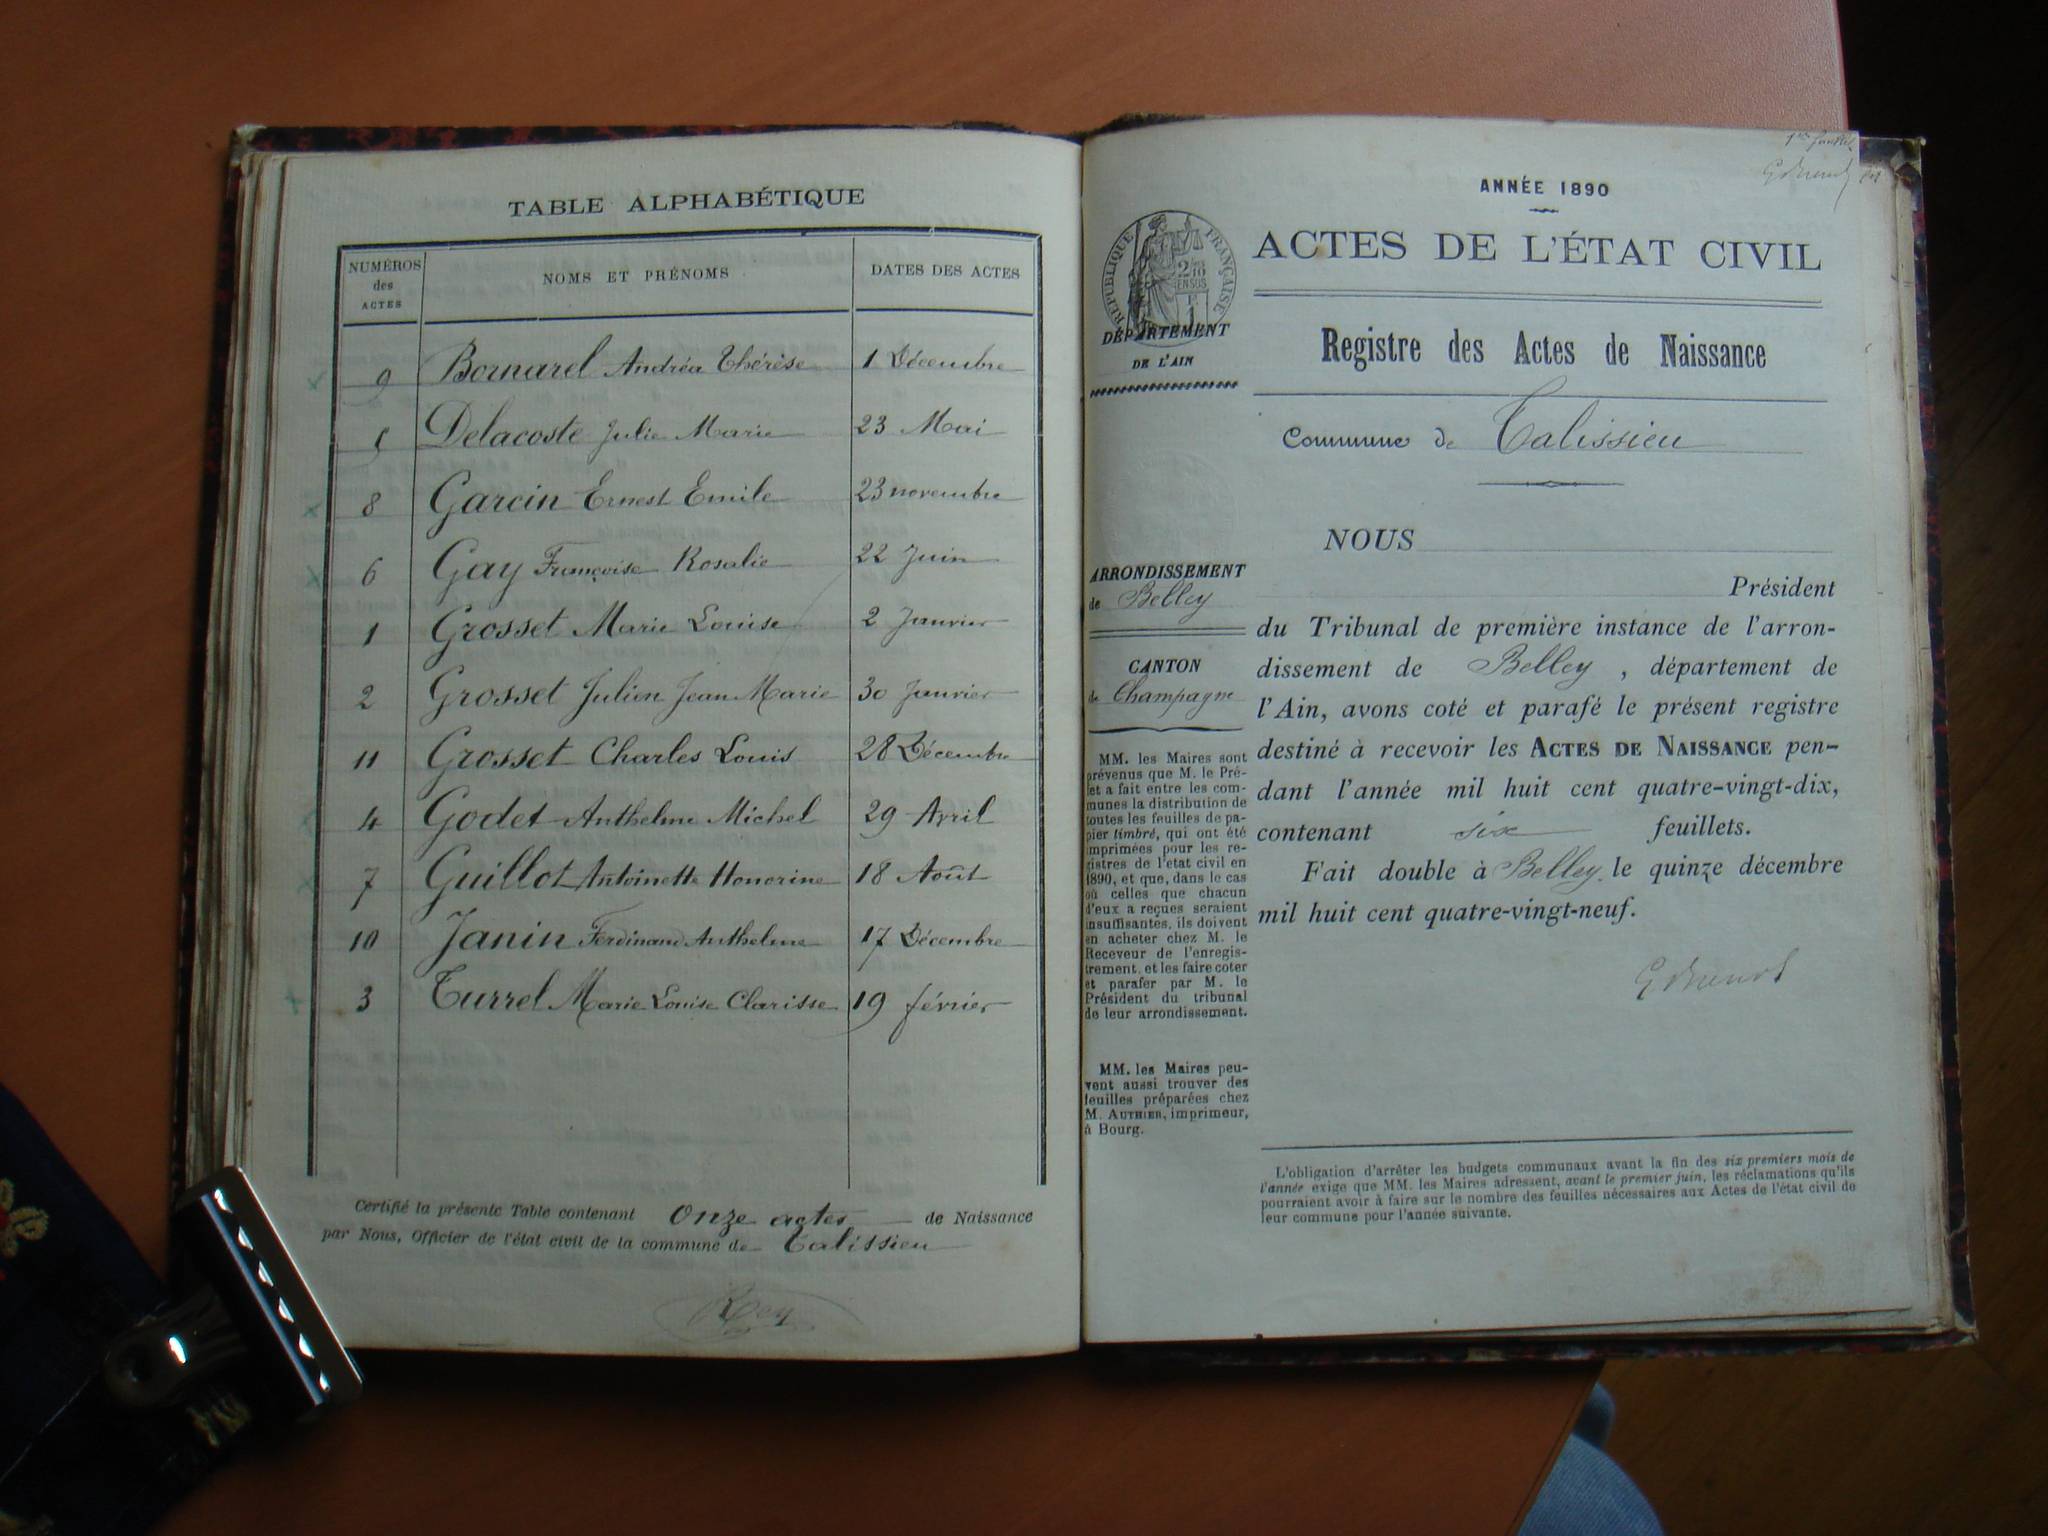 TABLE ALPHABÉTIQUE
NUMÉROS des ACTES NOMS ET PRÉNOMS DATES DES ACTES
9 Bornarel Andréa Thérèse 1 Décembre
5 Delacoste Julie Marie 23 Mai
8 Garcin Ernest Emile 23 novembre
6 Gay Françoise Rosalie 22 Juin
1 Grosset Marie Louise 2 Janvier
2 Grosset Julien Jean Marie 30 Janvier
11 Grosset Charles Louis 28 Décembre
4 Godet Anthelme Michel 29 Avril
7 Guillot Antoinette Honorine 18 Août
10 Janin Ferdinand Anthelme 17 Décembre
3 Turrel Marie Louise Clarisse 19 février
Certifié la présente Table contenant Onze actes de Naissance
par Nous, Officier de l'état civil de la commune de Talissieu
Rey
ANNÉE 1890
ACTES DE L'ÉTAT CIVIL
RÉPUBLIQUE FRANÇAISE
DÉPARTEMENT
DE L'AIN
Registre des Actes de Naissance
Commune de Talissieu
ARRONDISSEMENT
de Belley
CANTON
de Champagne
MM. les Maires sont
prévenus que M. le Pré-
fet a fait entre les com-
munes la distribution de
toutes les feuilles de pa-
pier timbré, qui ont été
imprimées pour les re-
gistres de l'etat civil en
1890, et que, dans le cas
où celles que chacun
d'eux a reçues seraient
insuffisantes, ils doivent
en acheter chez M. le
Receveur de l'enregis-
trement, et les faire coter
et parafer par M. le
Président du tribunal
de leur arrondissement.
MM. les Maires peu-
vent aussi trouver des
feuilles préparées chez
M. AUTHIER, imprimeur,
à Bourg.
NOUS
Président
du Tribunal de première instance de l'arron-
dissement de Belley, département de
l'Ain, avons coté et parafé le présent registre
destiné à recevoir les ACTES DE NAISSANCE pen-
dant l'année mil huit cent quatre-vingt-dix,
contenant six feuillets.
Fait double à Belley, le quinze décembre
mil huit cent quatre-vingt-neuf.
L'obligation d'arrêter les budgets communaux avant la fin des six premiers mois de
l'année exige que MM. les Maires adressent, avant le premier juin, les réclamations qu'ils
pourraient avoir à faire sur le nombre des feuilles nécessaires aux Actes de l'état civil de
leur commune pour l'année suivante.